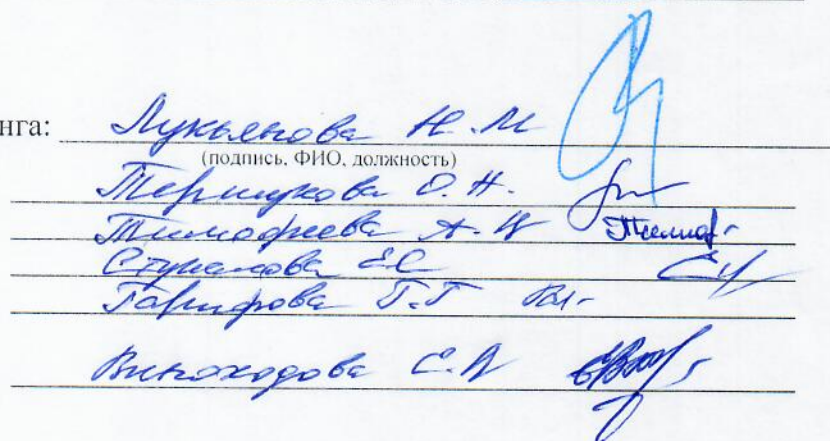 нга: Лукьянова Н.М
(подпись, ФИО, должность)
Тершукова О.Н.
Тимофеева А.И
Ступакова Е.С
Гарифова Г.Г
Виноходова С.В